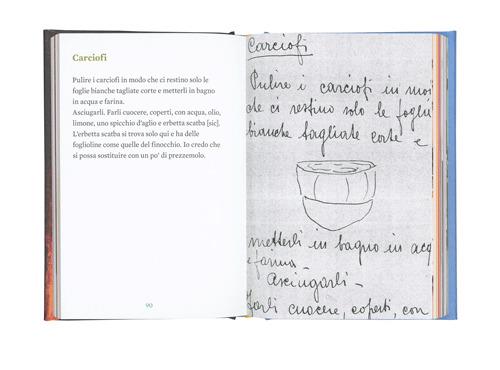 Carciofi
Pulire i carciofi in modo che ci restino solo le
foglie bianche tagliate corte e metterli in bagno
in acqua e farina.
Asciugarli. Farli cuocere, coperti, con acqua, olio,
limone, uno spicchio d'aglio e erbetta scatba [sic].
L'erbetta scatba si trova solo qui e ha delle
foglioline come quelle del finocchio. Io credo che
si possa sostituire con un po' di prezzemolo.
90
Carciofi
Pulire i carciofi in mo
che ci restino solo le fogli
bianche tagliate corte e
metterli in bagno in acq
e farina -
Asciugarli -
Farli cuocere, coperti, con